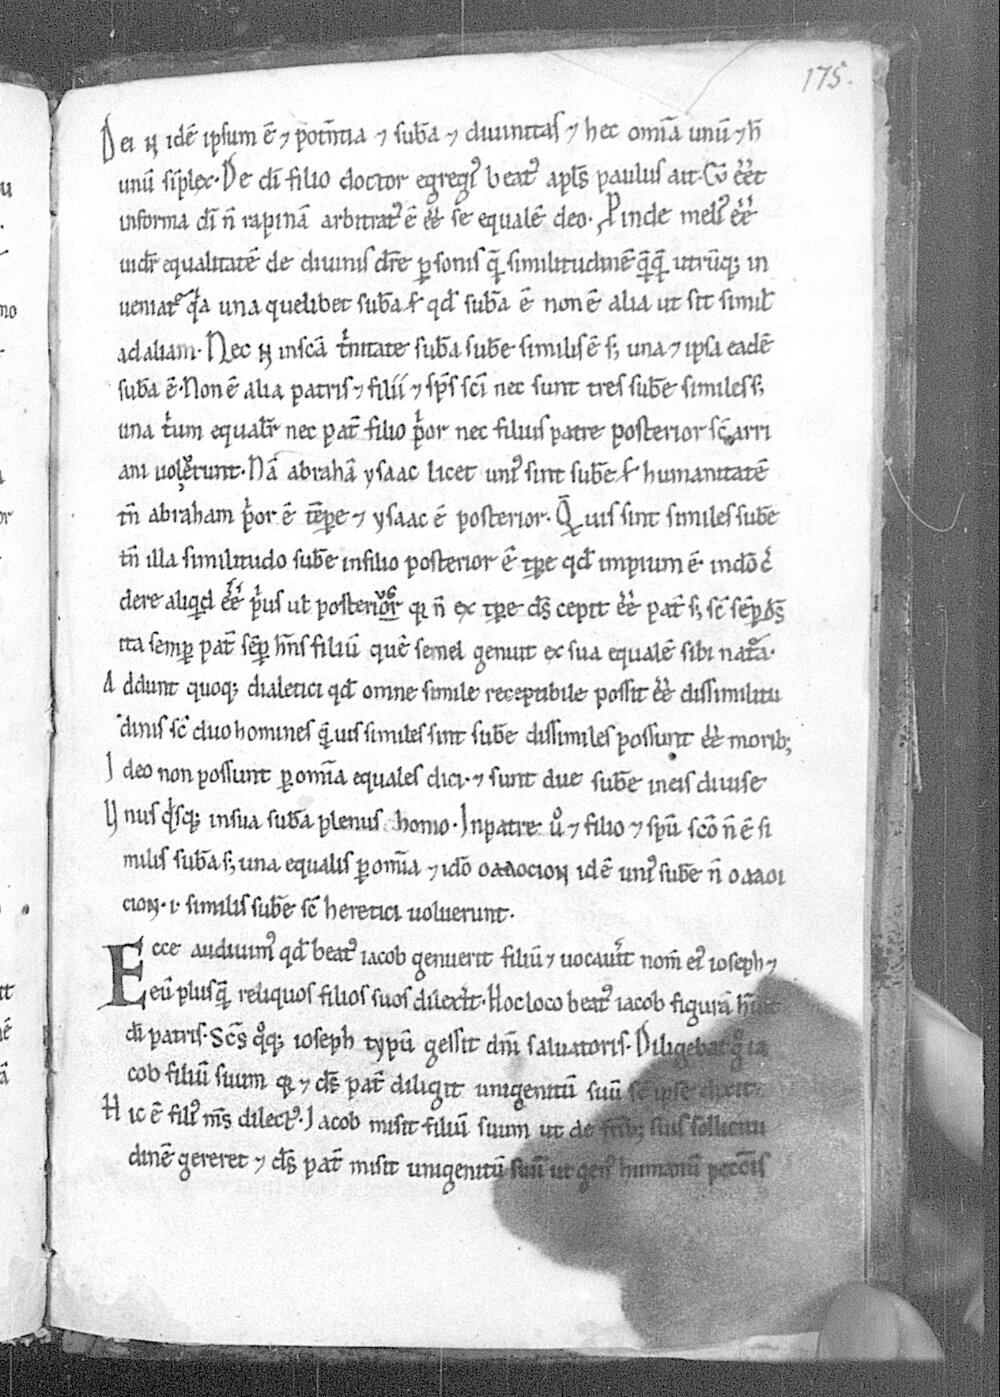 175.
Dei .n. idē ipsum ē ⁊ potn̄tia ⁊ sub̄a ⁊ diuinitas ⁊ hec om̄ia unū ⁊ h̄
unū siplex. De dī filio doctor egregiꝰ beatꝰ apl̄s paulus ait. Cū eēt
in forma dī n̄ rapinā arbitratꝰ ē eē se equalē deo. Pinde meliꝰ eē
uidr̄ equalitatē de diuinis dr̄e ꝑsonis q̄ similitudinē utrūq; in
ueniat᷑ qͥa una quelibet sub̄a ⁊ qd̄ sub̄a ē non ē alia ut sit simil̄
ad aliam. Nec .n. in sc̄a tͥnitate sub̄a sub̄e similis ē s; una ⁊ ipsa eadē
sub̄a ē. Non ē alia patris ⁊ filii ⁊ sp̄s sc̄i nec sunt tres sub̄e similes s;
una tͥum equalr̄ nec pat̄ filio pͥor nec filius patre posterior sc̄ arri
ani uolerunt. Nā abrahā ysaac licet uniꝰ sint sub̄e ⁊ humanitatē
tn̄ abraham pͥor ē tēꝑe ⁊ ysaac ē posterior. Q̄uis sint similes sub̄e
tn̄ illa similitudo sub̄e in filio posterior ē tꝑe qd̄ impium ē in dō c̄
dere aliqͥd eē pͥus ut̄ posteriꝰ qr n̄ ex tꝑe ds̄ cepit eē pat̄ s; sc̄ sēꝑ ds̄
ita semꝑ pat̄ sēꝑ hn̄s filiū quē semel genuit ex sua equalē sibi nat̄a.
Addunt quoq; dialetici qd̄ omne simile receptibile possit eē dissimilitu
dinis sc̄ duo homines q̄uis similes sint sub̄e dissimiles possunt eē morib;
Ideo non possunt ꝑ om̄ia equales dici. ⁊ sunt due sub̄e in eis diuise
Vnus qͥsq; in sua sub̄a plenus homo. In patre ūo ⁊ filio ⁊ spū sc̄o n̄ ē si
milis sub̄a s; una equalis ꝑ om̄ia ⁊ idō oaaocion idē uniꝰ sub̄e n̄ oaaoi
cion .i. similis sub̄e sc̄ heretici uoluerunt.
Ecce audiuimꝰ qd̄ beatꝰ iacob genuerit filiū ⁊ uocauͥt nom̄ eiꝰ ioseph ⁊
eū plusq̄ reliquos filios suos dilexͥt. Hoc loco beatꝰ iacob figurā
dī patris. Sc̄s qͦq; ioseph typū gessit dn̄i saluatoris. Diligebat gͦ ia
cob filiū suum qr ⁊ ds̄ pat̄ diligit unigenitū suū sc̄ ipse dixit.
Hic ē filiꝰ m̄s dilectꝰ. Iacob misit filiū suum ut de fr̄ib; suis sollicitu
dinē gereret ⁊ ds̄ pat̄ misit unigenitū suū ut genꝰ humanū